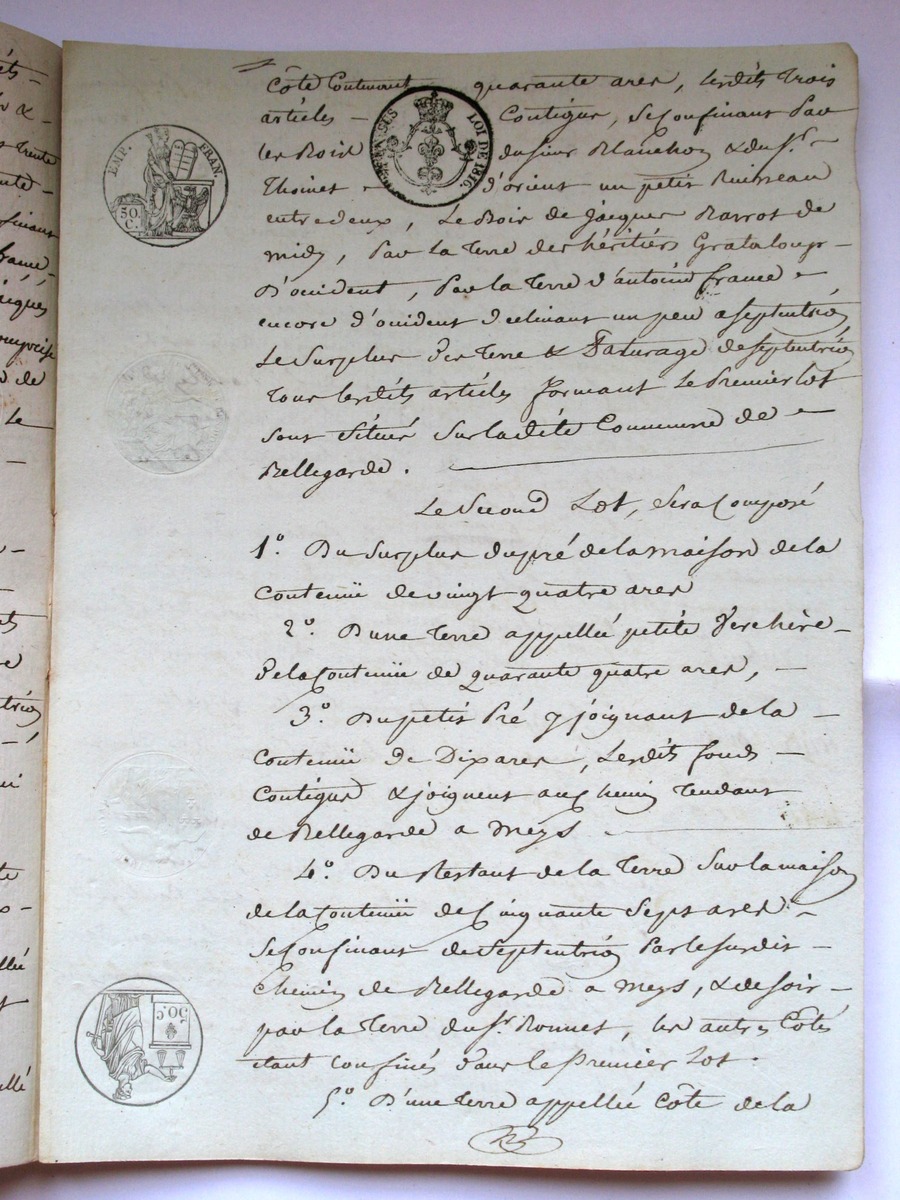 Côté Contenant quarante ares, lesdits trois
articles Contigus, se Confinant Par
les Bois du sieur Planchon & du Sr.
Thoinet d'orient un petit Ruisseau
entre deux, Le Bois de jacques Barrot de
midy, Par La Terre des héritiers Grataloup
D'occident, Par la Terre d'antoine france
encore d'occident declinant un peu a septentrion
Le Surplus Des Terre & Paturage de septentrion
Tous lesdits articles formant Le Premier Lot
sont Situés Sur la dite Commune de
Bellegarde.
Le Second Lot, Sera Composé
1°. Du Surplus du pré de la maison de la
Contenüe de vingt quatre ares
2°. D'une Terre appellée petite Verchère
De la Contenüe de quarante quatre ares,
3°. Du petit Pré y joignant de la
Contenüe de Dix ares, Lesdits fonds
Contigus & joignent au Chemin Tendant
de Bellegarde a Meys
4°. Du Restant de la Terre Sur la maison
de la Contenüe de Cinquante Sept ares
Se Confinant de Septentrion Par le susdit
Chemin de Bellegarde a Meys, & de soir
par la Terre du Sr. Bonnet, les autres Côtés
étant confinés Dans le Premier Lot.
5°. D'une Terre appellée Côte de la
EMP. FRAN.
50. C.
LOI DE 1816.
50. C.